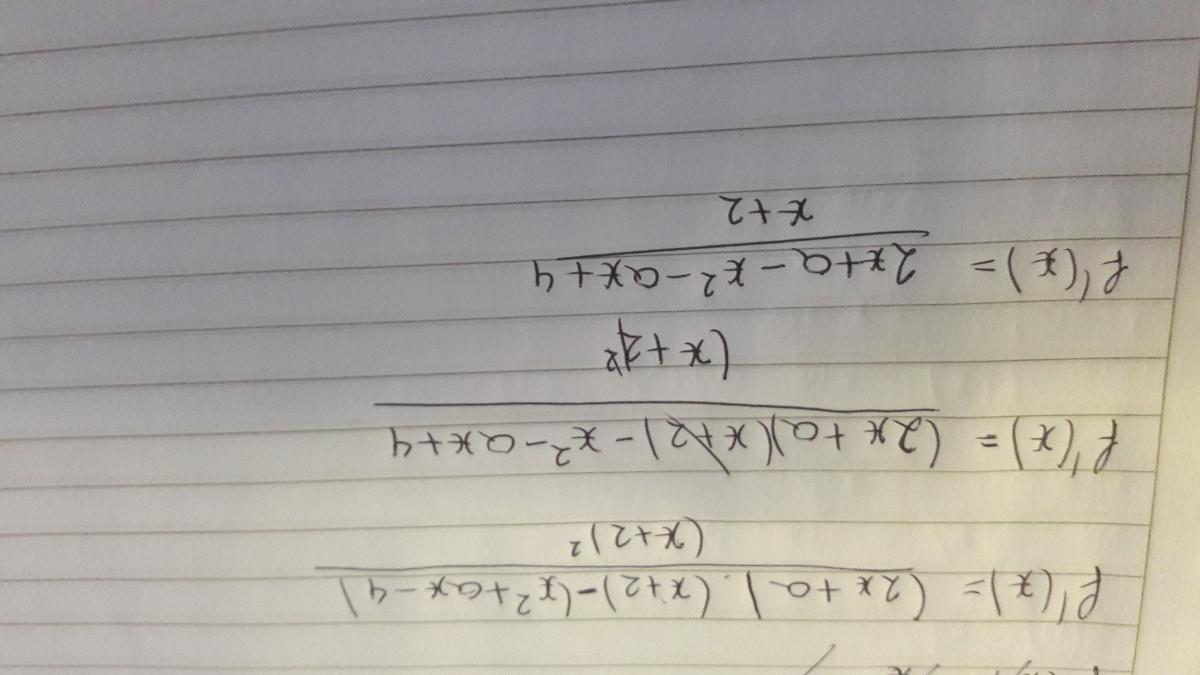 f'(x) = (2x+a).(x+2)-(x²+ax-4)
(x+2)²
f'(x) = (2x+a)(x+2)-x²-ax+4
(x+2)²
f'(x) = 2x+a-x²-ax+4
x+2